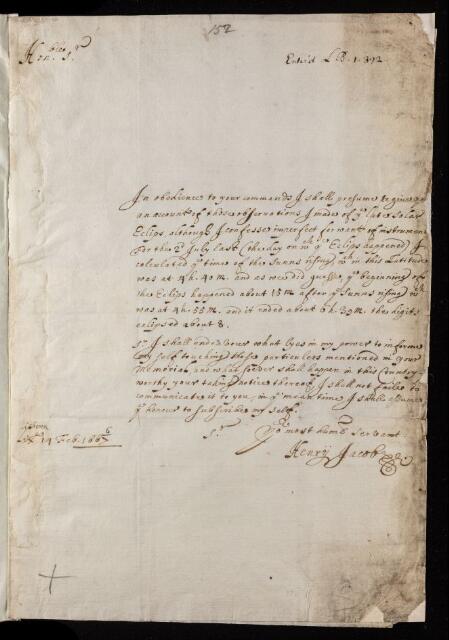 152
Hon:ble Sr
Enter'd LB. 1. 372
In obedience to your commands I shall presume to give you
an account of those observations I made of ye late Solar
Eclips, although I confesse imperfect for want of instruments
For the 2d July last (the day on wch ye Eclips happened) I
calculated ye time of the Sunns rising wch in this Latitude
was at 4h. 40m. and as we did guesse ye beginning of
the Eclips happened about 15m after ye Sunns rising wch
was at 4h. 55m. and it ended about h. 30m. the digits
eclipsed about 8.
Sr I shall endeavour what lyes in my power to informe
my self touching those particulers mentioned in your
Memorial, and what soever shall happen in this Country
worthy your taking notice thereof, I shall not faile to
communicate it to you, in ye mean time I shall assume
ye honour to subscribe my self
Sr. Yor most humb servant
14 Feb. 1666/7
Henry Jacobs